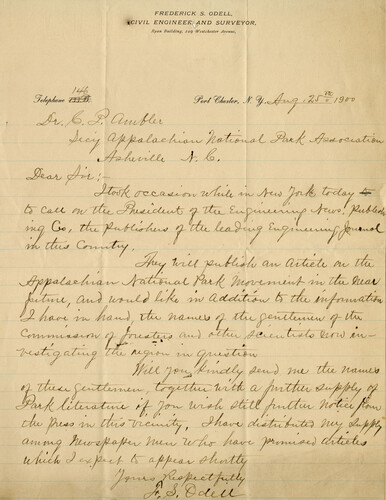 FREDERICK S. ODELL,
CIVIL ENGINEER AND SURVEYOR,
Ryan Building, 109 Westchester Avenue.
144
Telephone 133 B.
Port Chester, N. Y. Aug. 25th 1900
Dr. C. P. Ambler
Secy Appalachian National Park Association
Asheville N. C.
Dear Sir:-
I took occasion while in New York today
to call on the President of the Engineering News Publish
ing Co, the publishers of the leading Engineering Journal
in this Country.
They will publish an Article on the
Appalachian National Park Movement in the near
future, and would like in addition to the information
I have in hand, the names of the gentlemen of the
Commission of foresters and other scientists now in-
vestigating the region in question
Will you kindly send me the names
of these gentlemen, together with a further supply of
Park literature if you wish still further notice from
the press in this vicinity. I have distributed my supply
among Newspaper men who have promised articles
which I expect to appear shortly
Yours Respectfully
F. S. Odell